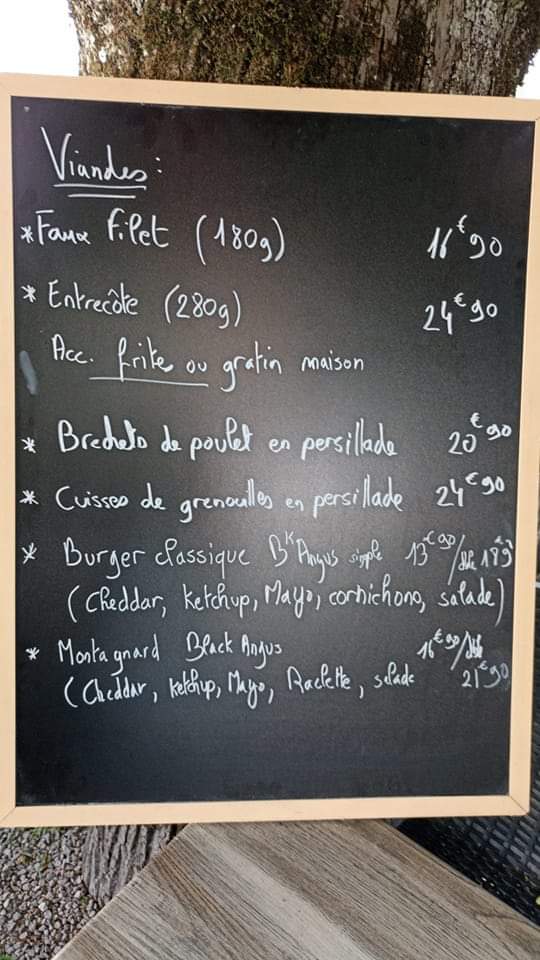 Viandes :
* Faux filet (180g) 16€90
* Entrecôte (280g) 24€90
Acc. frite ou gratin maison
* Brechets de poulet en persillade 20€90
* Cuisses de grenouilles en persillade 24€90
* Burger classique BK Angus simple 13€90/dble 18€9
(Cheddar, Ketchup, Mayo, cornichons, salade)
* Montagnard Black Angus 16€90/dble
(Cheddar, Ketchup, Mayo, Raclette, salade 21€90